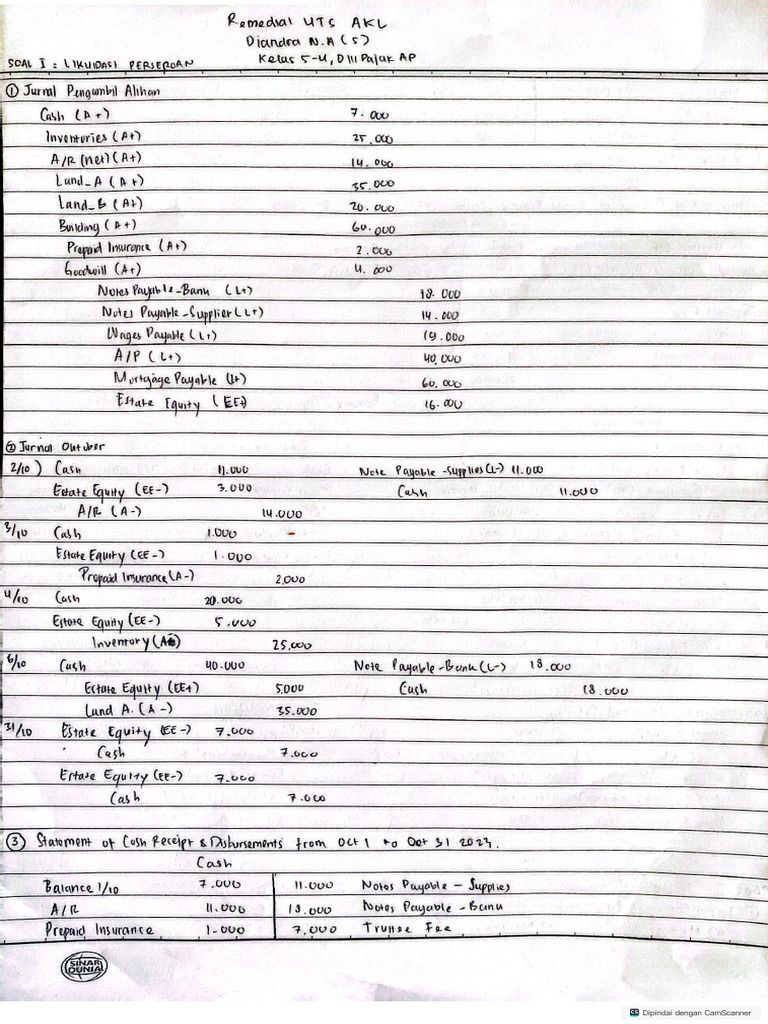 Remedial UTS AKL
Diandra N.A (5)
Kelas 5-4, DIII Pajak AP
SOAL I : LIKUIDASI PERSEROAN
① Jurnal Pengambil Alihan
Cash (A+) 7.000
Inventories (A+) 25.000
A/R (net) (A+) 14.000
Land_A (A+) 35.000
Land_B (A+) 20.000
Building (A+) 60.000
Prepaid Insurance (A+) 2.000
Goodwill (A+) 4.000
Notes Payable-Bank (L+) 18.000
Notes Payable-Supplier (L+) 14.000
Wages Payable (L+) 19.000
A/P (L+) 40.000
Mortgage Payable (L+) 60.000
Estate Equity (EE+) 16.000
② Jurnal Oktober
2/10) Cash 11.000 Note Payable-Supplies (L-) 11.000
Estate Equity (EE-) 3.000 Cash 11.000
A/R (A-) 14.000
3/10 Cash 1.000 -
Estate Equity (EE-) 1.000
Prepaid Insurance (A-) 2.000
4/10 Cash 20.000
Estate Equity (EE-) 5.000
Inventory 25.000
6/10 Cash 40.000 Note Payable-Bank (L-) 18.000
Estate Equity (EE+) 5.000 Cash 18.000
Land A. (A-) 35.000
31/10 Estate Equity (EE-) 7.000
Cash 7.000
Estate Equity (EE-) 7.000
Cash 7.000
③ Statement of Cash Receipt & Disbursements from Oct 1 to Oct 31 2023.
Cash
Balance 1/10 7.000 11.000 Notes Payable - Supplies
A/R 11.000 18.000 Notes Payable - Bank
Prepaid Insurance 1.000 7.000 Trustee Fee
SINAR
DUNIA
CS Dipindai dengan CamScanner